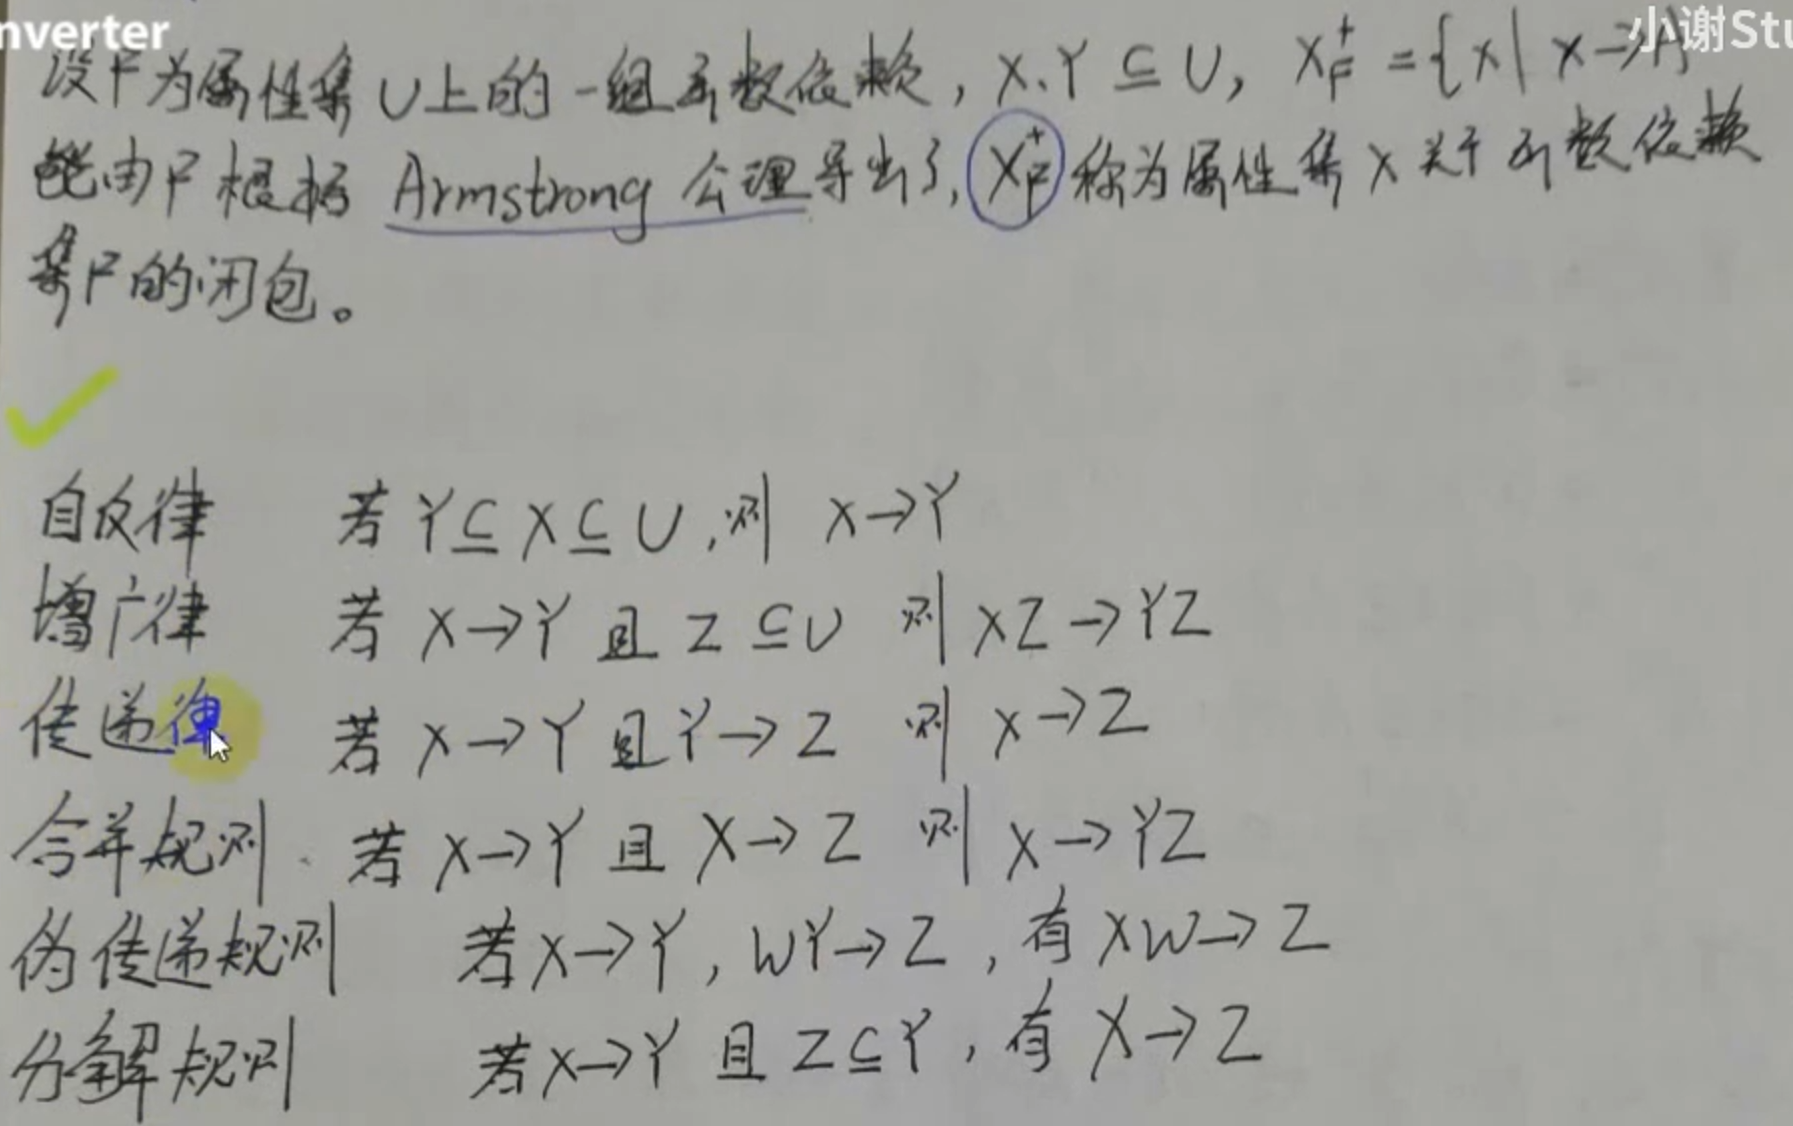 nverter
小谢Stu
设F为属性集U上的一组函数依赖，X、Y ⊆ U，X_F^+ = {X| X→A
能由F根据 Armstrong 公理导出}，X_F^+ 称为属性集X关于函数依赖
集F的闭包。
自反律 若 Y⊆X⊆U，则 X→Y
增广律 若 X→Y 且 Z⊆U 则 XZ→YZ
传递律 若 X→Y 且 Y→Z 则 X→Z
合并规则 若 X→Y 且 X→Z 则 X→YZ
伪传递规则 若X→Y，WY→Z，有XW→Z
分解规则 若X→Y 且 Z⊆Y，有 X→Z